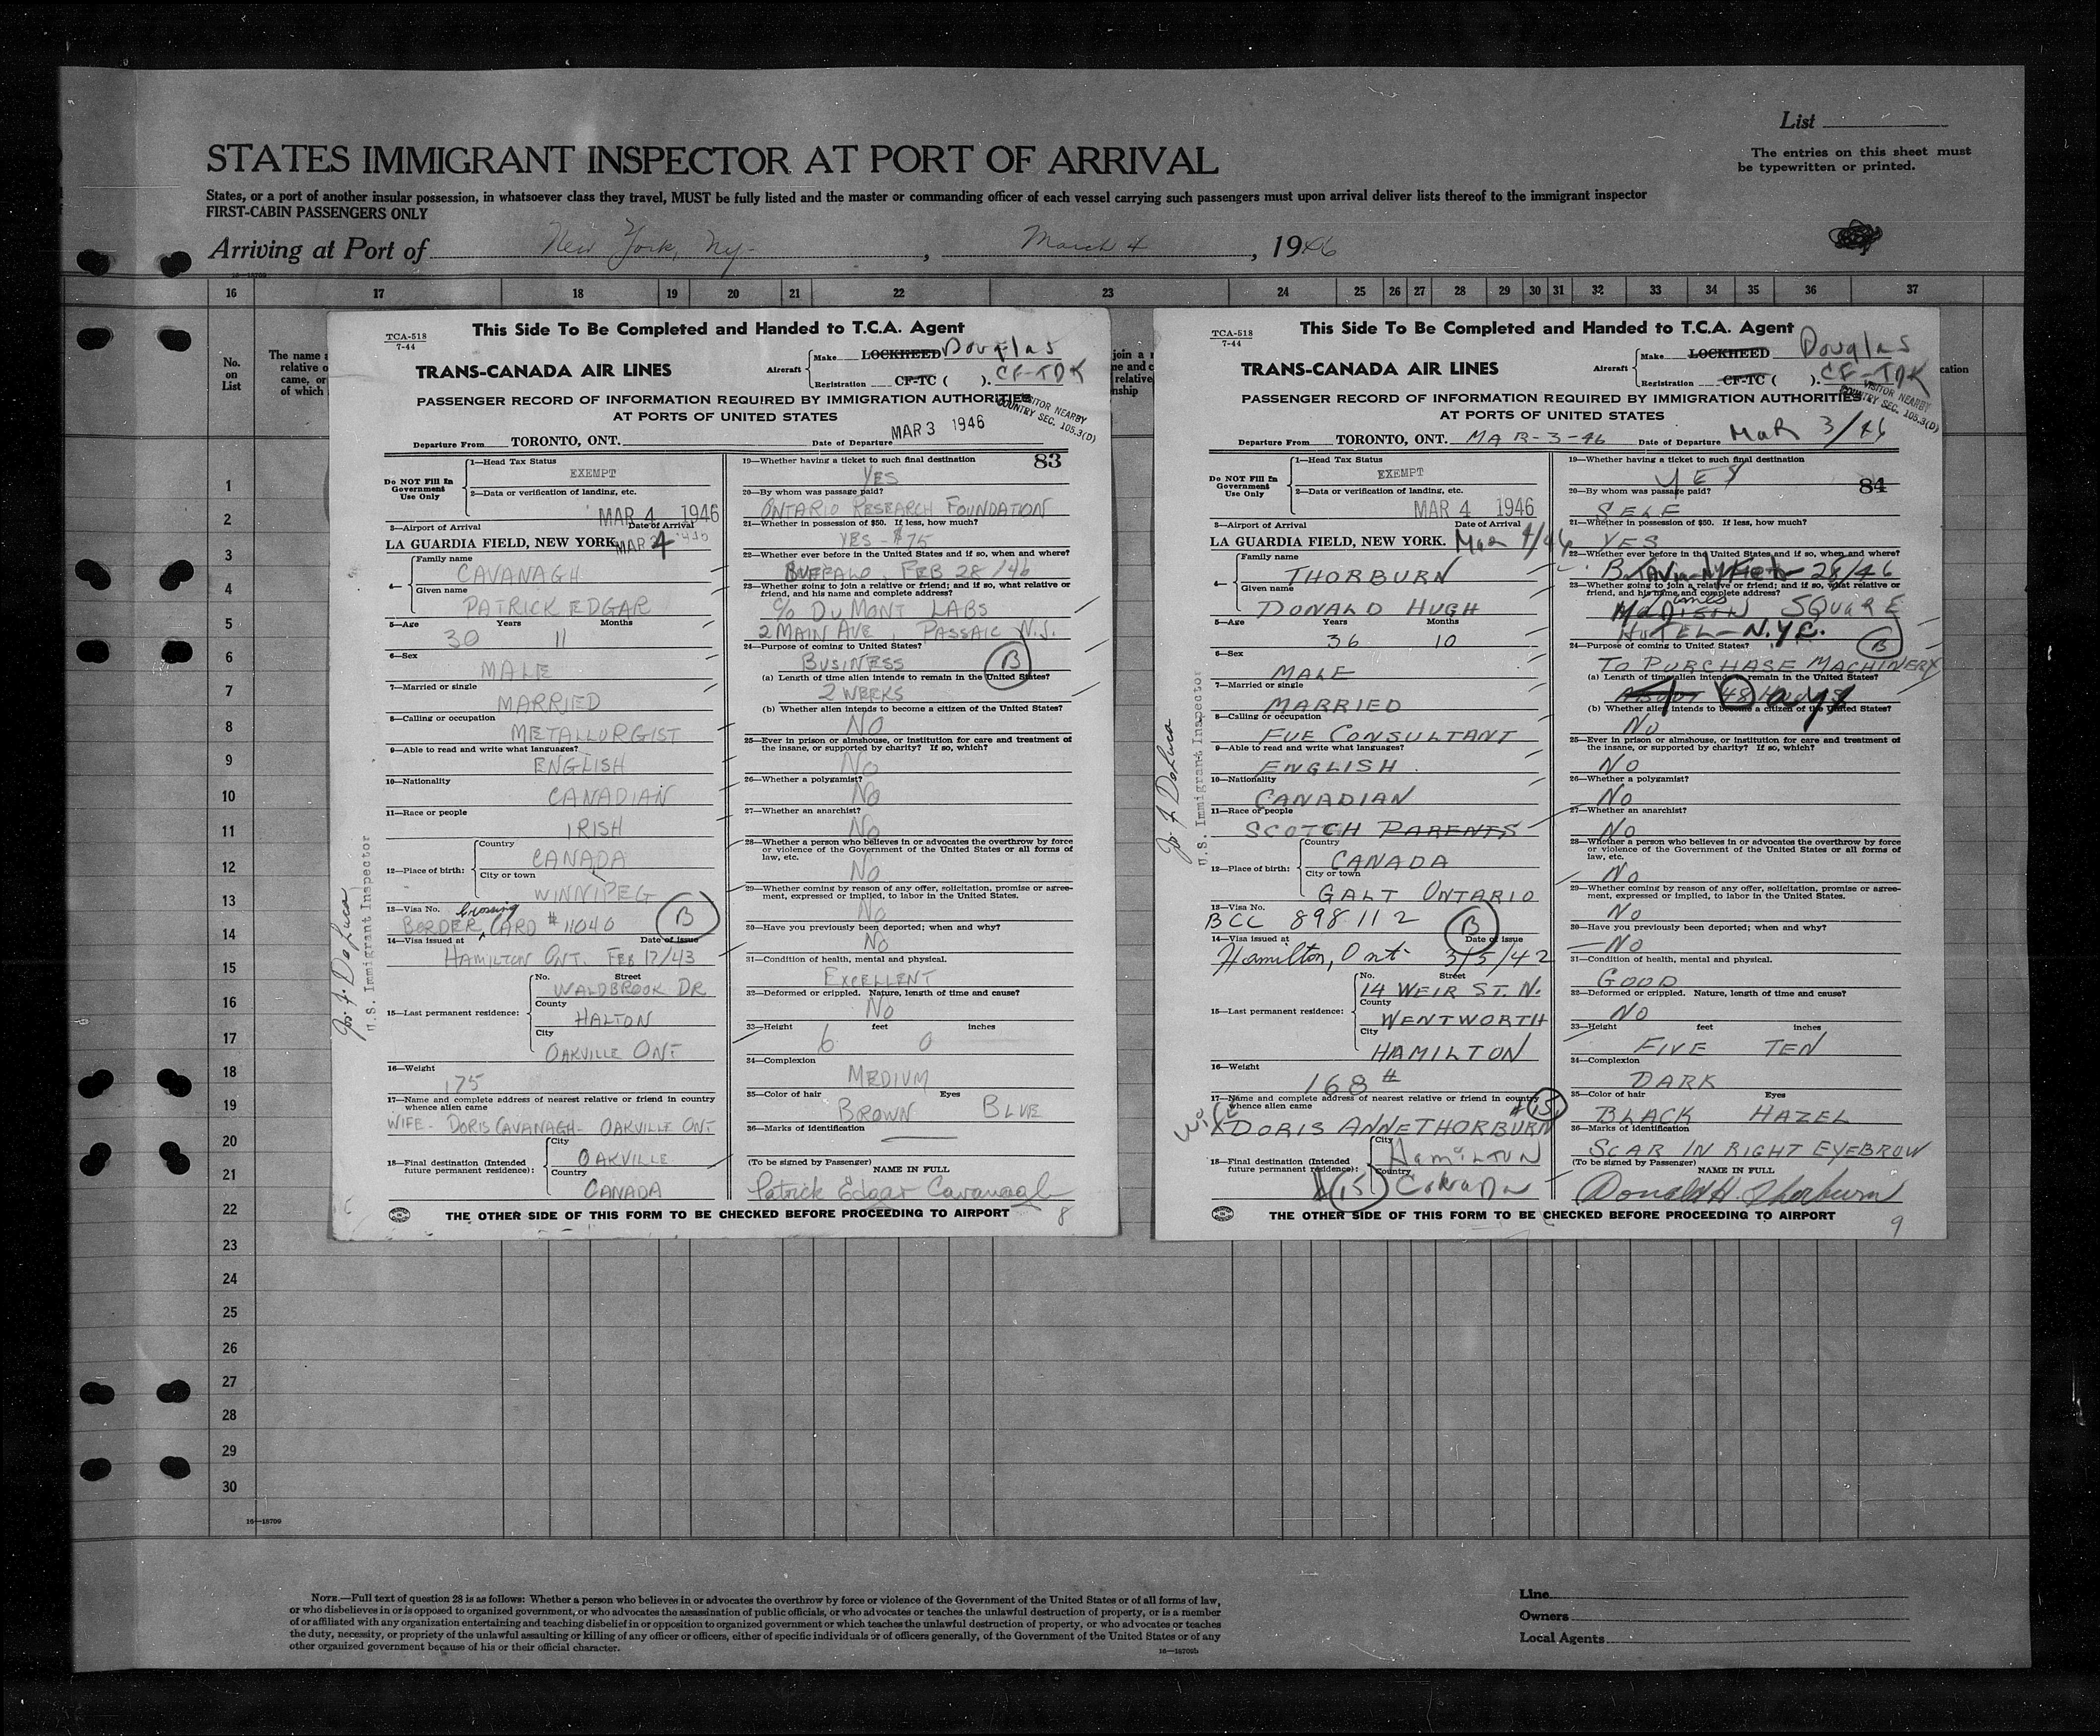 List
The entries on this sheet must
be typewritten or printed.
STATES IMMIGRANT INSPECTOR AT PORT OF ARRIVAL
States, or a port of another insular possession, in whatsoever class they travel, MUST be fully listed and the master or commanding officer of each vessel carrying such passengers must upon arrival deliver lists thereof to the immigrant inspector
FIRST-CABIN PASSENGERS ONLY
Arriving at Port of New York, Ny- , March 4 , 1946
16—18709
16 17 18 19 20 21 22 23 24 25 26 27 28 29 30 31 32 33 34 35 36 37
No.
on
List
The name a
relative o
came, or
of which
1
2
3
4
5
6
7
8
9
10
11
12
13
14
15
16
17
18
19
20
21
22
23
24
25
26
27
28
29
30
16—18709
This Side To Be Completed and Handed to T.C.A. Agent
TCA-518
7-44
TRANS-CANADA AIR LINES
Aircraft
Make LOCKHEED Douglas
Registration CF-TC ( ). CF-TDK
PASSENGER RECORD OF INFORMATION REQUIRED BY IMMIGRATION AUTHORITIES
AT PORTS OF UNITED STATES
VISITOR NEARBY
COUNTRY SEC. 105.3(D)
Departure From TORONTO, ONT. Date of Departure MAR 3 1946
Do NOT Fill In
Government
Use Only
1—Head Tax Status
EXEMPT
2—Data or verification of landing, etc.
MAR 4 1946
3—Airport of Arrival Date of Arrival
LA GUARDIA FIELD, NEW YORK. MAR 4
4— Family name
CAVANAGH
Given name
PATRICK EDGAR
5—Age Years Months
30 11
6—Sex
MALE
7—Married or single
MARRIED
8—Calling or occupation
METALLURGIST
9—Able to read and write what languages?
ENGLISH
10—Nationality
CANADIAN
11—Race or people
IRISH
12—Place of birth:
Country
CANADA
City or town
WINNIPEG
13—Visa No. Crossing
BORDER CARD # 11040 B
14—Visa issued at Date of Issue
HAMILTON ONT. FEB 17/43
15—Last permanent residence:
No. Street
WALDBROOK DR
County
HALTON
City
OAKVILLE ONT
16—Weight
175
17—Name and complete address of nearest relative or friend in country
whence alien came
WIFE - DORIS CAVANAGH - OAKVILLE ONT
18—Final destination (Intended
future permanent residence):
City
OAKVILLE
Country
CANADA
19—Whether having a ticket to such final destination
83
YES
20—By whom was passage paid?
ONTARIO RESEARCH FOUNDATION
21—Whether in possession of $50. If less, how much?
YES - $75
22—Whether ever before in the United States and if so, when and where?
BUFFALO, FEB 28/46
23—Whether going to join a relative or friend; and if so, what relative or
friend, and his name and complete address?
C/O DUMONT LABS
2 MAIN AVE, PASSAIC N.J.
24—Purpose of coming to United States?
BUSINESS B
(a) Length of time alien intends to remain in the United States?
2 WEEKS
(b) Whether alien intends to become a citizen of the United States?
NO
25—Ever in prison or almshouse, or institution for care and treatment of
the insane, or supported by charity? If so, which?
NO
26—Whether a polygamist?
NO
27—Whether an anarchist?
NO
28—Whether a person who believes in or advocates the overthrow by force
or violence of the Government of the United States or all forms of
law, etc.
NO
29—Whether coming by reason of any offer, solicitation, promise or agree-
ment, expressed or implied, to labor in the United States.
NO
30—Have you previously been deported; when and why?
NO
31—Condition of health, mental and physical.
EXCELLENT
32—Deformed or crippled. Nature, length of time and cause?
NO
33—Height feet inches
6 0
34—Complexion
MEDIUM
35—Color of hair Eyes
BROWN BLUE
36—Marks of identification
(To be signed by Passenger)
NAME IN FULL
Patrick Edgar Cavanagh
THE OTHER SIDE OF THIS FORM TO BE CHECKED BEFORE PROCEEDING TO AIRPORT
8
Jos. J. DeLuca
U.S. Immigrant Inspector
join a r
me and c
relative
nship
This Side To Be Completed and Handed to T.C.A. Agent
TCA-518
7-44
TRANS-CANADA AIR LINES
Aircraft
Make LOCKHEED Douglas
Registration CF-TC ( ). CF-TDK
cation
PASSENGER RECORD OF INFORMATION REQUIRED BY IMMIGRATION AUTHORITIES
AT PORTS OF UNITED STATES
VISITOR NEARBY
COUNTRY SEC. 105.3(D)
Departure From TORONTO, ONT. MAR-3-46 Date of Departure MaR 3/46
Do NOT Fill In
Government
Use Only
1—Head Tax Status
EXEMPT
2—Data or verification of landing, etc.
MAR 4 1946
3—Airport of Arrival Date of Arrival
LA GUARDIA FIELD, NEW YORK. Mar 4/46
4— Family name
THORBURN
Given name
DONALD HUGH
5—Age Years Months
36 10
6—Sex
MALE
7—Married or single
MARRIED
8—Calling or occupation
FUE CONSULTANT
9—Able to read and write what languages?
ENGLISH.
10—Nationality
CANADIAN
11—Race or people
SCOTCH PARENTS
12—Place of birth:
Country
CANADA
City or town
GALT ONTARIO
13—Visa No.
BCC 898112 B
14—Visa issued at Date of Issue
Hamilton, Ont. 3/5/42
15—Last permanent residence:
No. Street
14 WEIR ST. N.
County
WENTWORTH
City
HAMILTON
16—Weight
168 #
17—Name and complete address of nearest relative or friend in country
whence alien came #15
Wife DORIS ANNE THORBURN
18—Final destination (Intended
future permanent residence):
City
HAMILTON
Country
#15 Canada
19—Whether having a ticket to such final destination
YES
84
20—By whom was passage paid?
SELF
21—Whether in possession of $50. If less, how much?
YES
22—Whether ever before in the United States and if so, when and where?
28/46
23—Whether going to join a relative or friend; and if so, what relative or
friend, and his name and complete address?
SQUARE
HOTEL - N.Y.C.
24—Purpose of coming to United States? B
TO PURCHASE MACHINERY
(a) Length of time alien intends to remain in the United States?
ABOUT 48 Hours Days
(b) Whether alien intends to become a citizen of the United States?
NO
25—Ever in prison or almshouse, or institution for care and treatment of
the insane, or supported by charity? If so, which?
NO
26—Whether a polygamist?
NO
27—Whether an anarchist?
NO
28—Whether a person who believes in or advocates the overthrow by force
or violence of the Government of the United States or all forms of
law, etc.
NO
29—Whether coming by reason of any offer, solicitation, promise or agree-
ment, expressed or implied, to labor in the United States.
NO
30—Have you previously been deported; when and why?
NO
31—Condition of health, mental and physical.
GOOD
32—Deformed or crippled. Nature, length of time and cause?
NO
33—Height feet inches
FIVE TEN
34—Complexion
DARK
35—Color of hair Eyes
BLACK HAZEL
36—Marks of identification
SCAR IN RIGHT EYEBROW
(To be signed by Passenger)
NAME IN FULL
Donald H. Thorburn
THE OTHER SIDE OF THIS FORM TO BE CHECKED BEFORE PROCEEDING TO AIRPORT
9
Jos. J. DeLuca
U.S. Immigrant Inspector
NOTE.—Full text of question 28 is as follows: Whether a person who believes in or advocates the overthrow by force or violence of the Government of the United States or of all forms of law,
or who disbelieves in or is opposed to organized government, or who advocates the assassination of public officials, or who advocates or teaches the unlawful destruction of property, or is a member
of or affiliated with any organization entertaining and teaching disbelief in or opposition to organized government or which teaches the unlawful destruction of property, or who advocates or teaches
the duty, necessity, or propriety of the unlawful assaulting or killing of any officer or officers, either of specific individuals or of officers generally, of the Government of the United States or of any
other organized government because of his or their official character.
16—18709b
Line
Owners
Local Agents